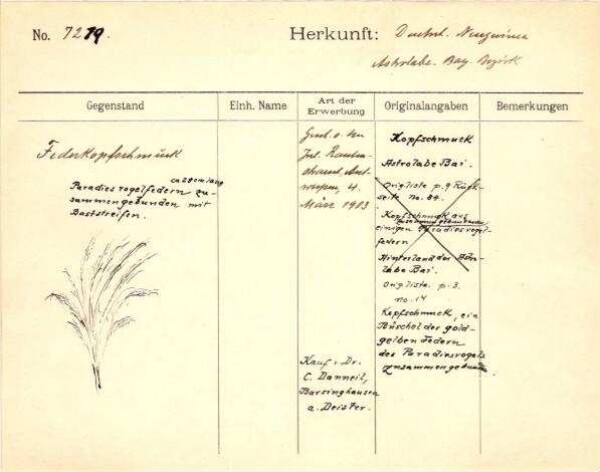 No. 7279.
Herkunft: Deutsch. Neuguinea
Astrolabe. Bay. Bezirk
Gegenstand
Einh. Name
Art der Erwerbung
Originalangaben
Bemerkungen
Federkopfschmuck
ca 28cm lang
Paradiesvogelfedern zu-
sammengebunden mit
Baststreifen.
März 1913
Kauf: Dr.
C. Danneil,
Barsinghausen
a. Deister.
Kopfschmuck
Astrolabe Bai.
Origliste p. 9 Rück-
seite No. 84.
Kopfschmuck aus
zusammengebundenen
einigen Paradiesvogel-
federn
Hinterland der Astro-
labe Bai.
Orig liste. p. 3.
no. 14
Kopfschmuck, ein
Büschel der gold-
gelben Federn
des Paradiesvogels
zusammengebunden